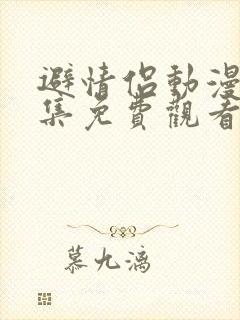 避情侶動漫
集免費觀看
慕九漓